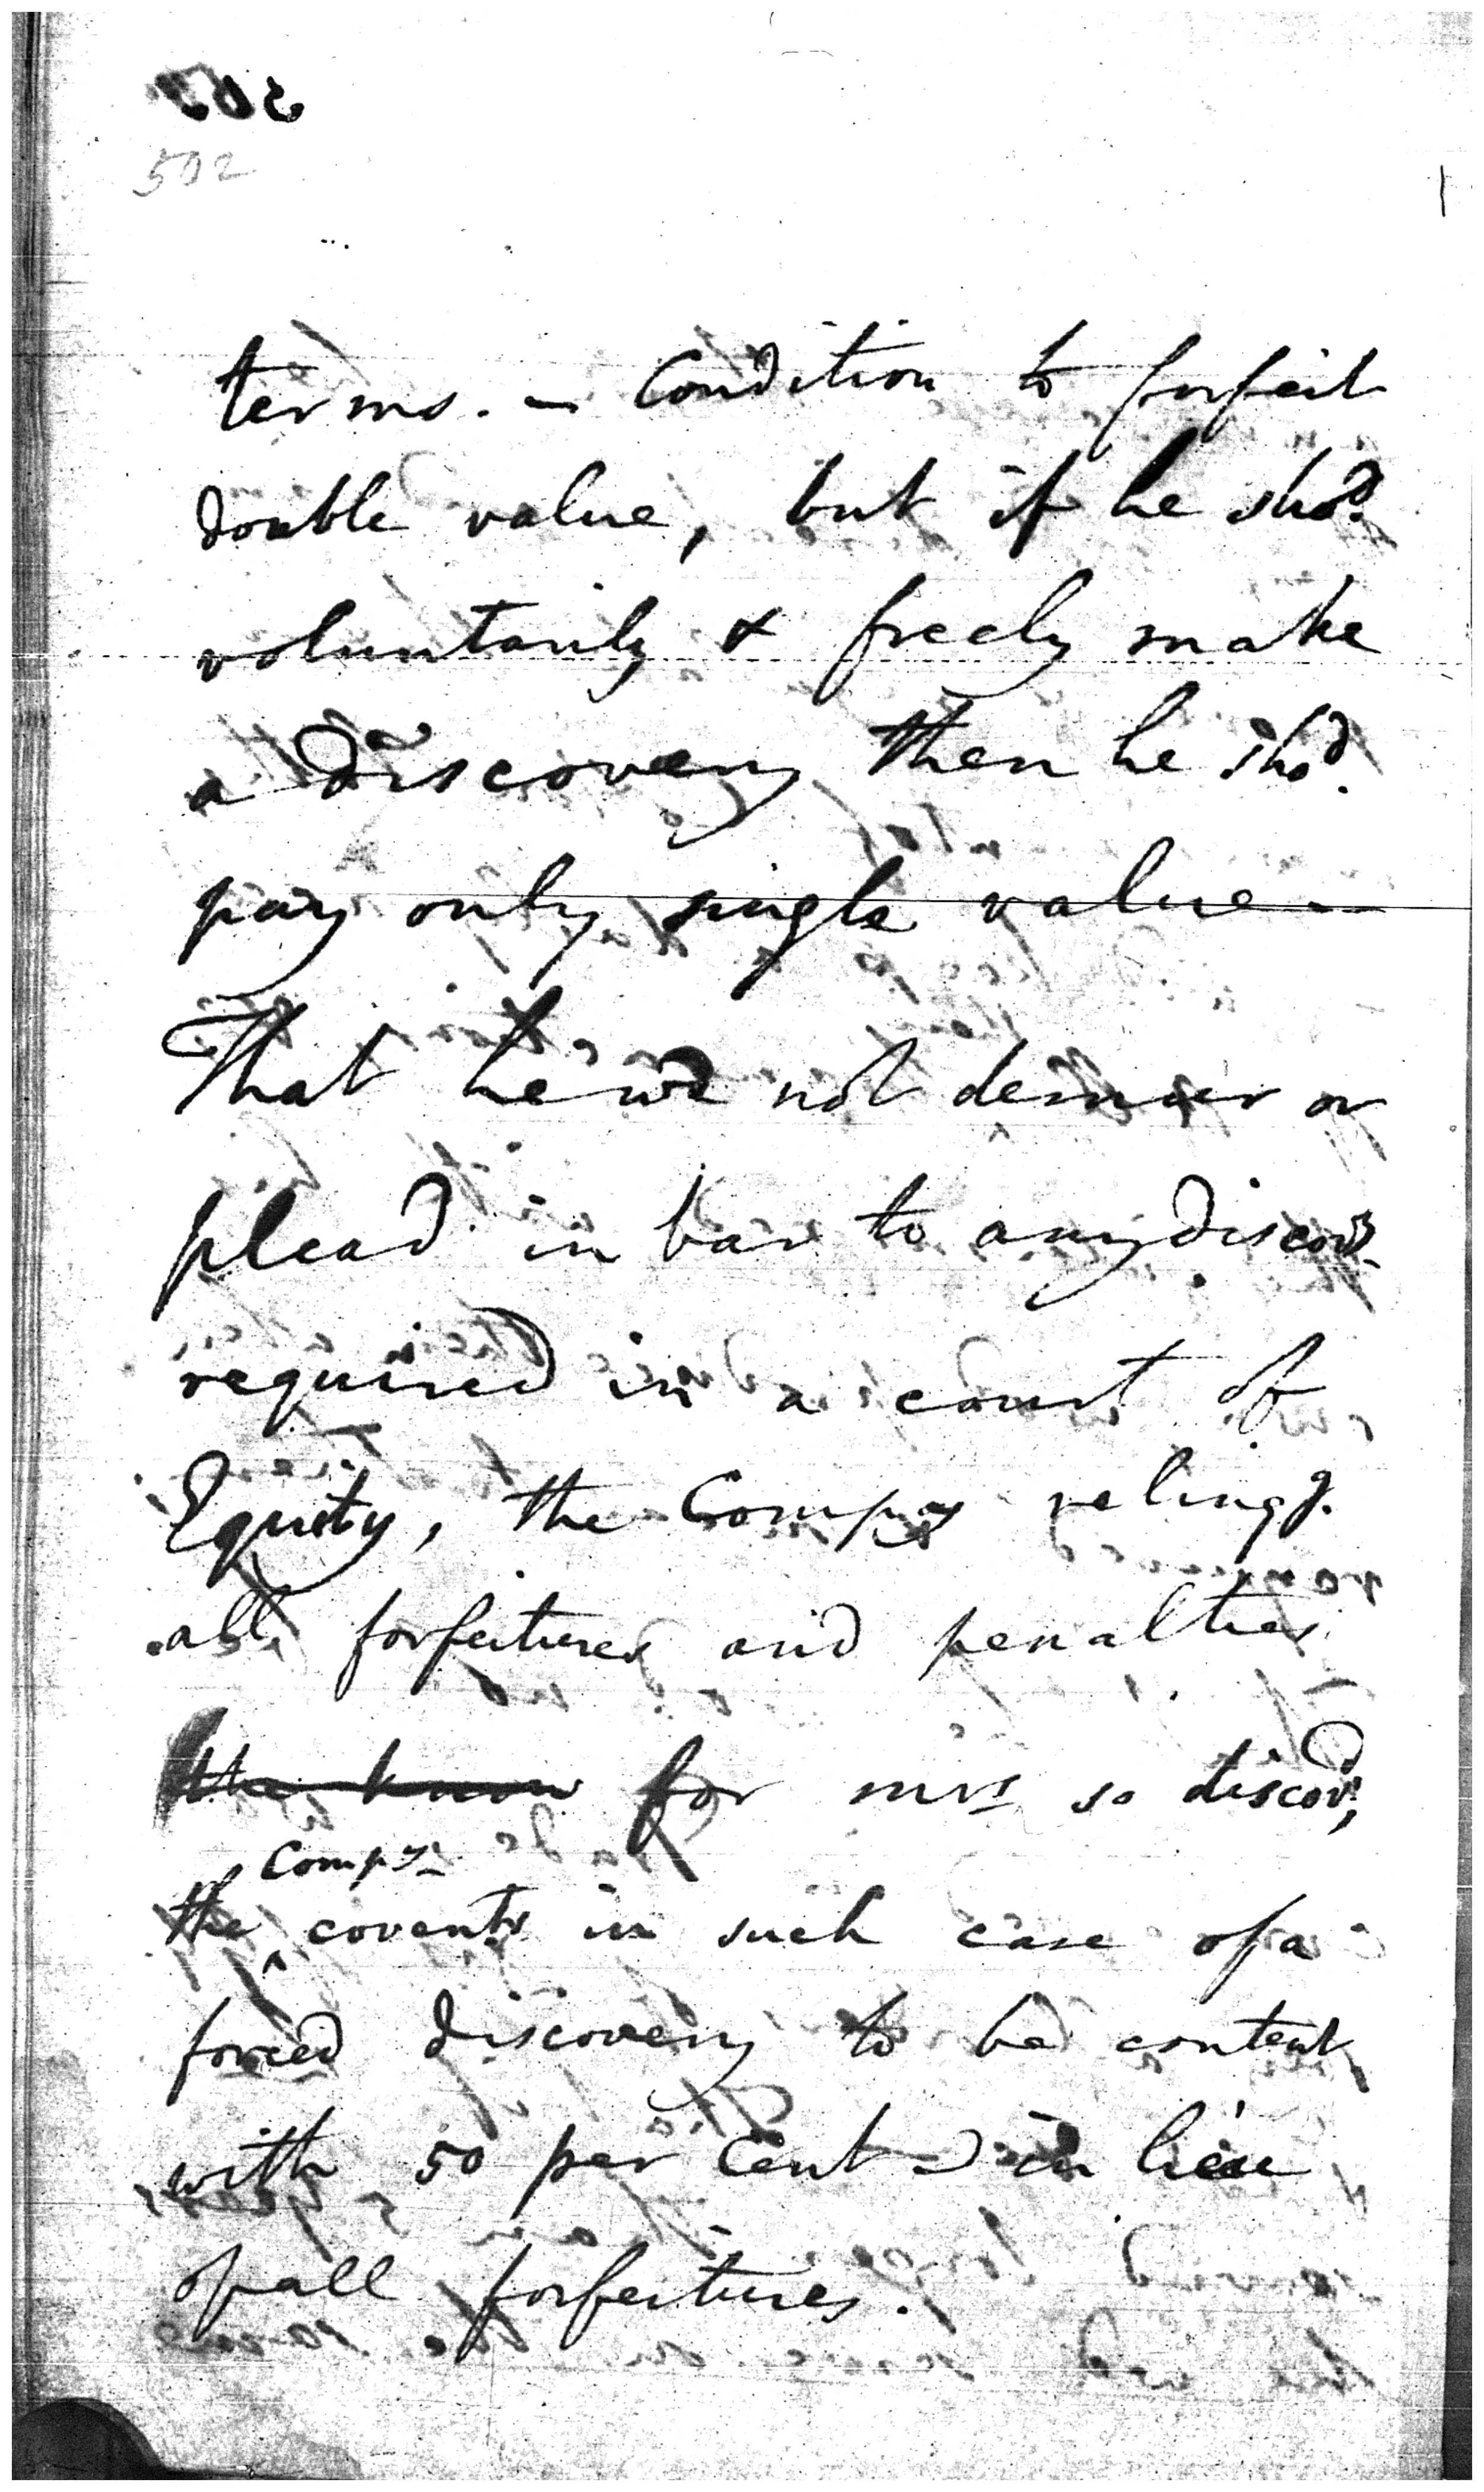 502
terms. — Condition to forfeit
double value, but if he shod.
voluntarily & freely make
a Discovery then he shod.
pay only single value —
That he wd not demur or
plead in bar to any discovy
required in a court of
Equity, the Compy relinqg.
all forfeitures and penalties
the know for mrs so discovd,
Compys
the covents in such case of a
forced discovery to be content
with 50 per Cent — in lieu
of all forfeitures.